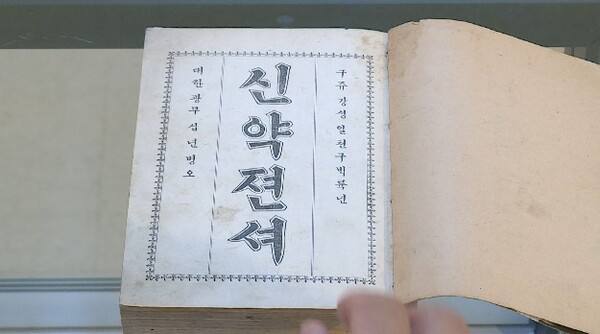 구쥬 강생 일천구백륙년
신약젼셔
대한 광무 십 년 병오